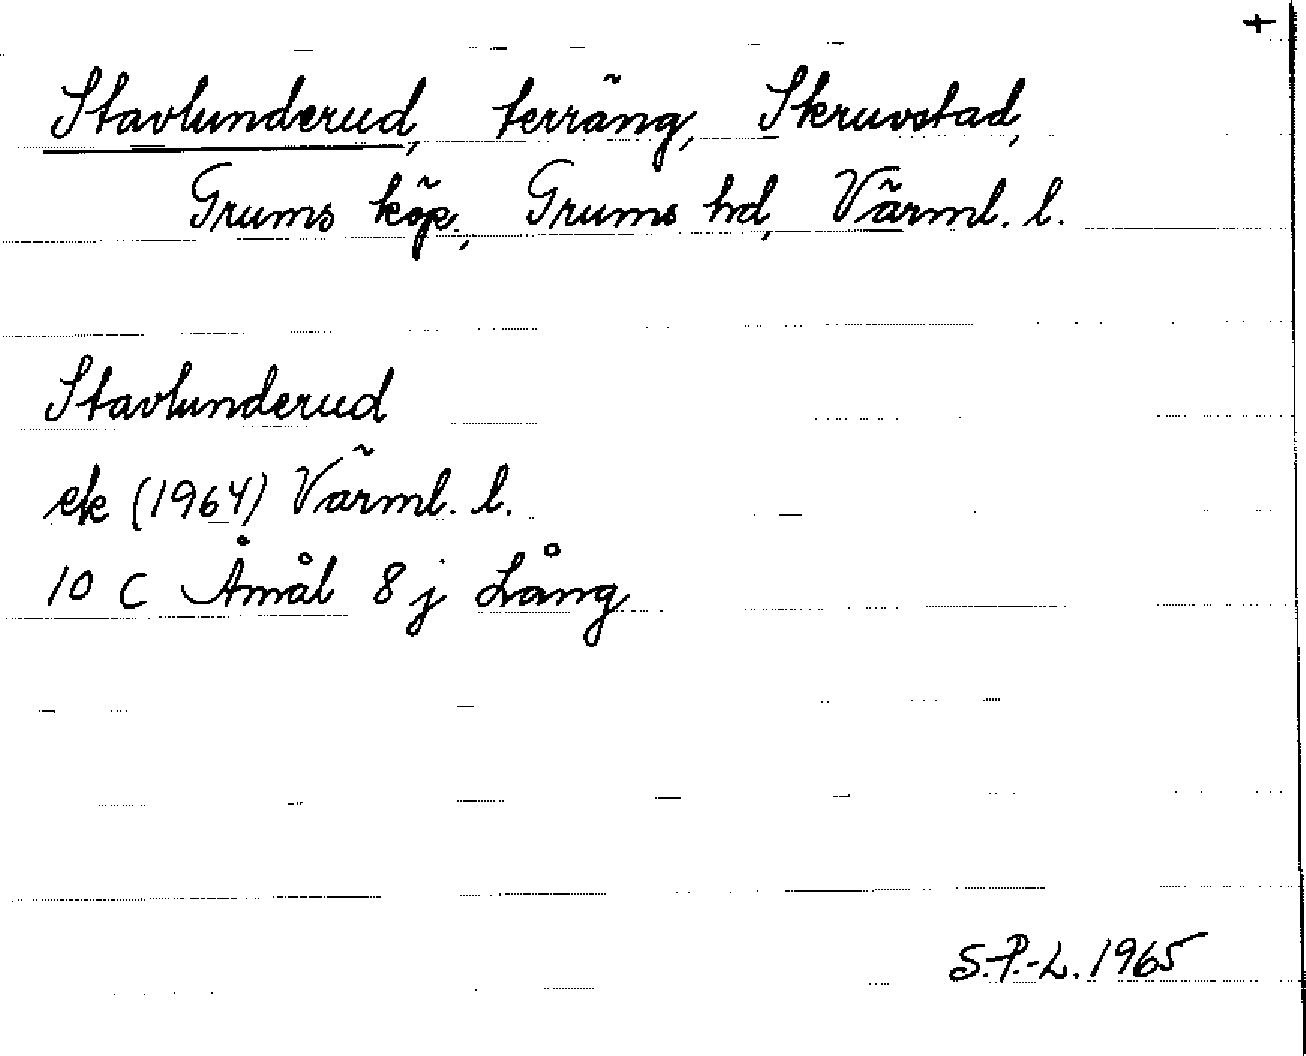 +
Stavlunderud, terräng, Skruvstad,
Grums köp., Grums hd, Värml. l.
Stavlunderud
ek (1964) Värml. l.
10 C Åmål 8 j Lång
S.P.-L. 1965